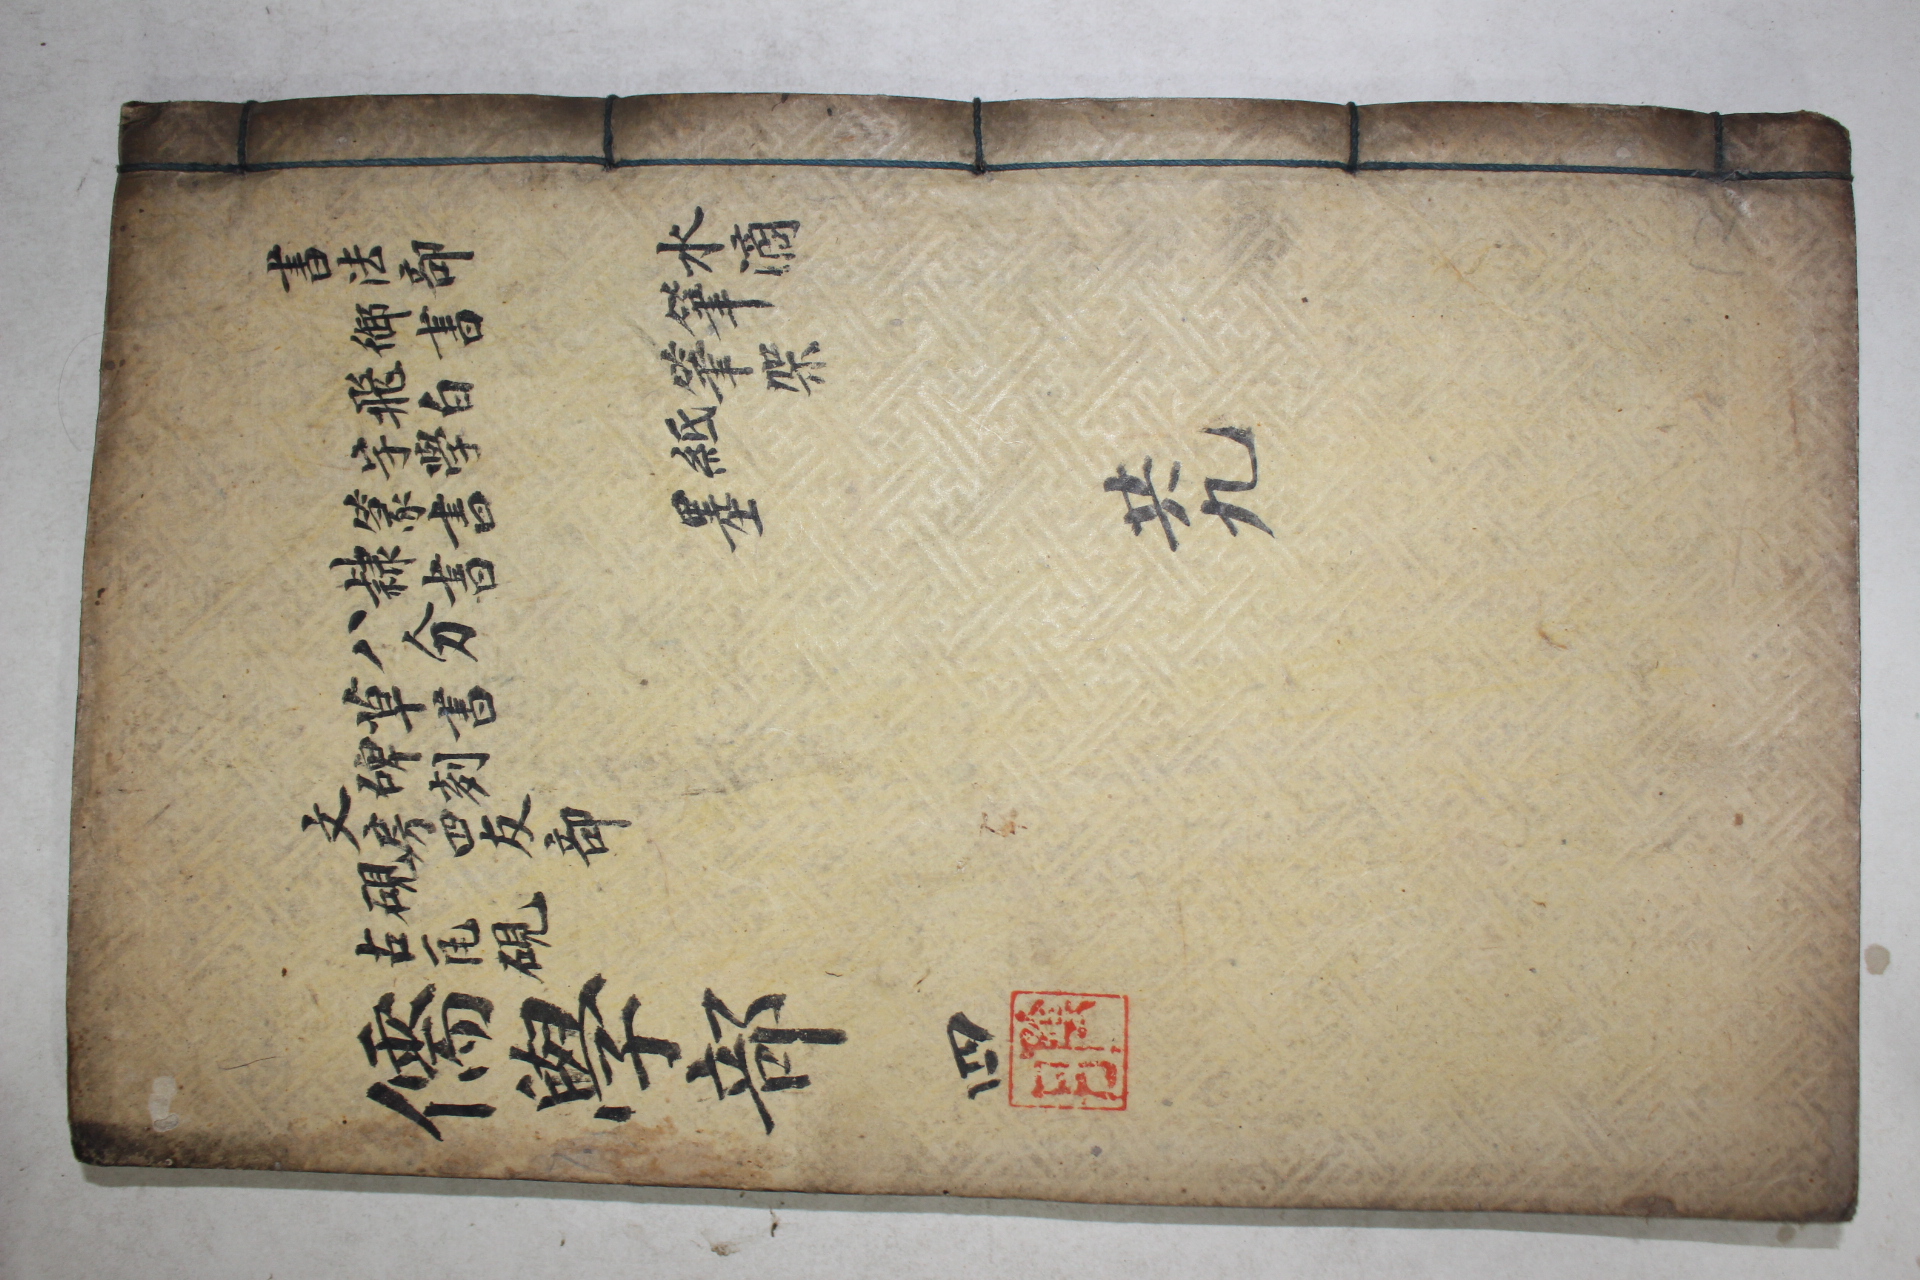 書法部
御書
飛白
字學
篆書
隷書
八分
草書
碑刻
文房四友部
硯
古瓦硯
水滴
筆
筆架
紙
墨
儒學部 四
共九